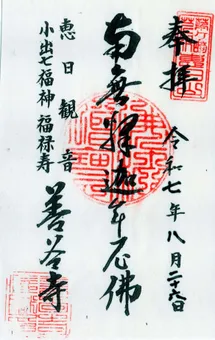 奉拝
令和七年八月二十六日
南無釋迦牟尼佛
恵日観音
小出七福神 福禄寿
善谷寺